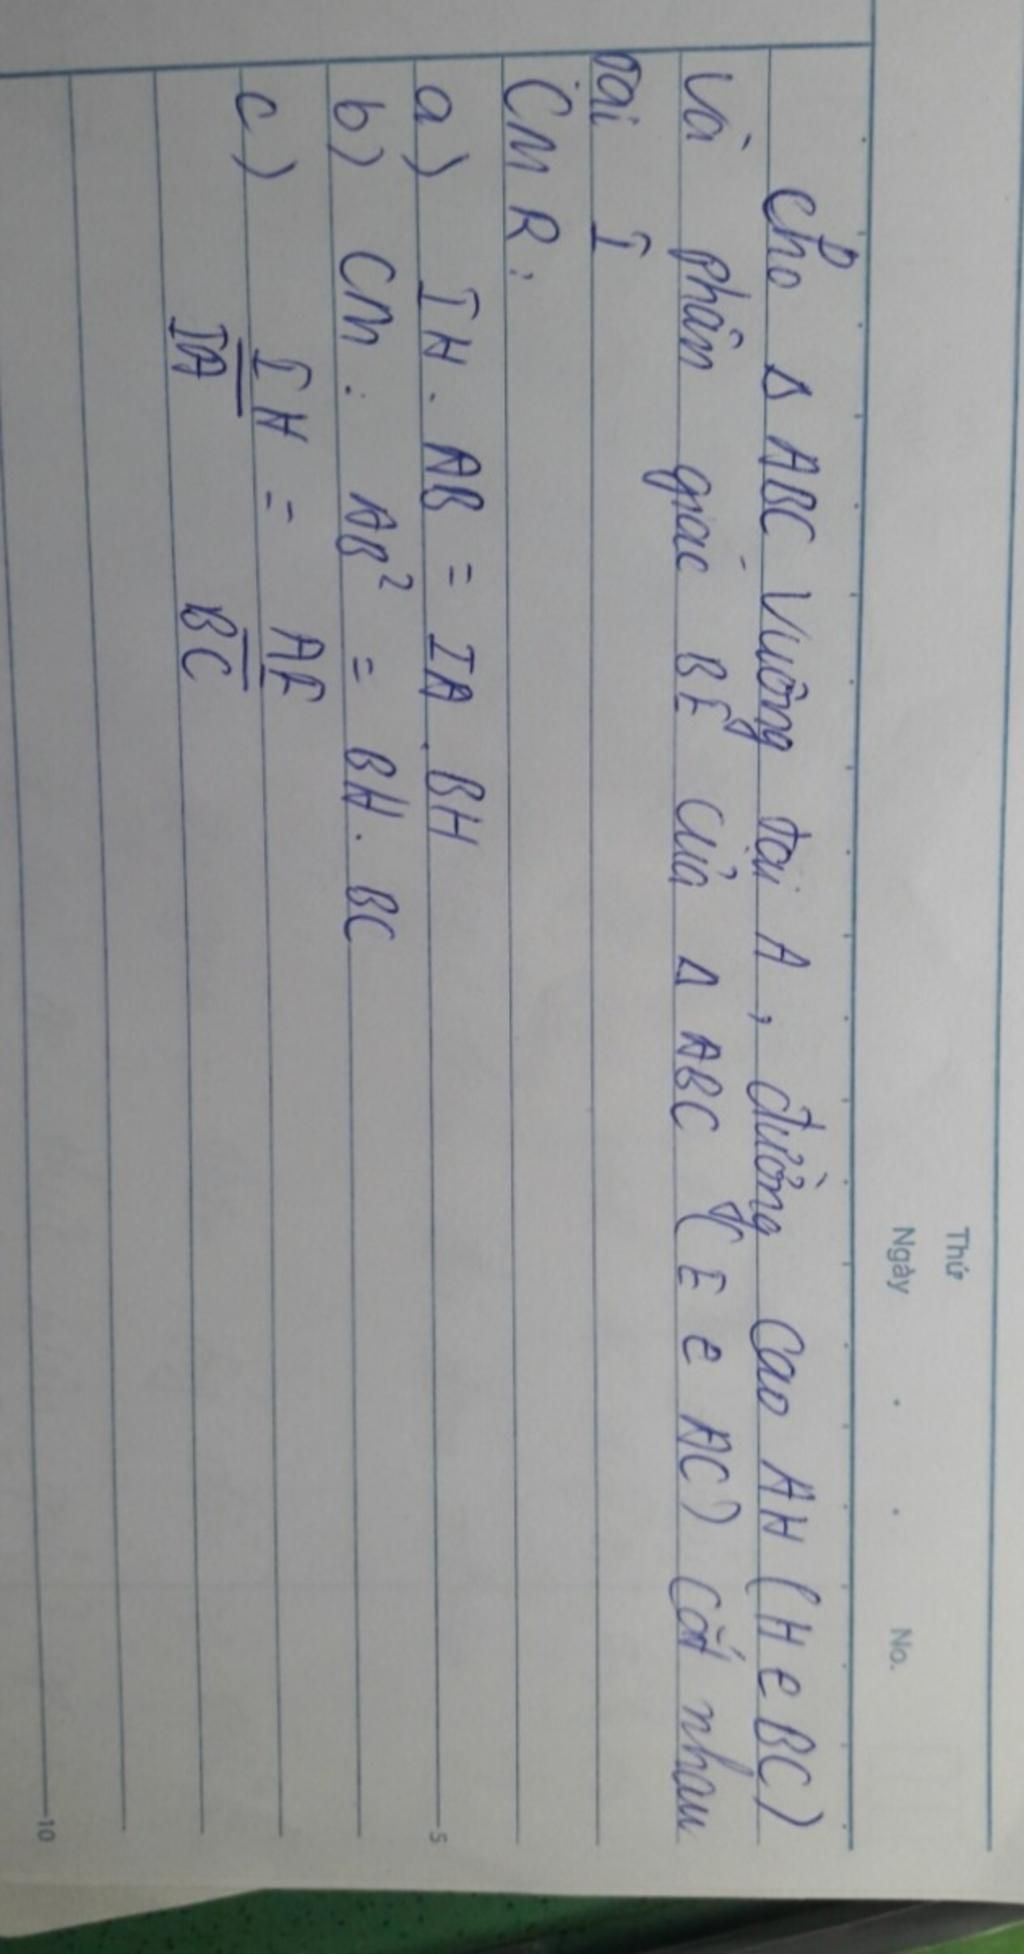 Thứ
Ngày . . No.
Cho Δ ABC vuông tại A, đường cao AH (H e BC)
và phân giác BE của Δ ABC (E e AC) cắt nhau
tại I
CMR:
a) IH . AB = IA . BH
5
b) CM : AB² = BH . BC
c) IH = AE
IA BC
10